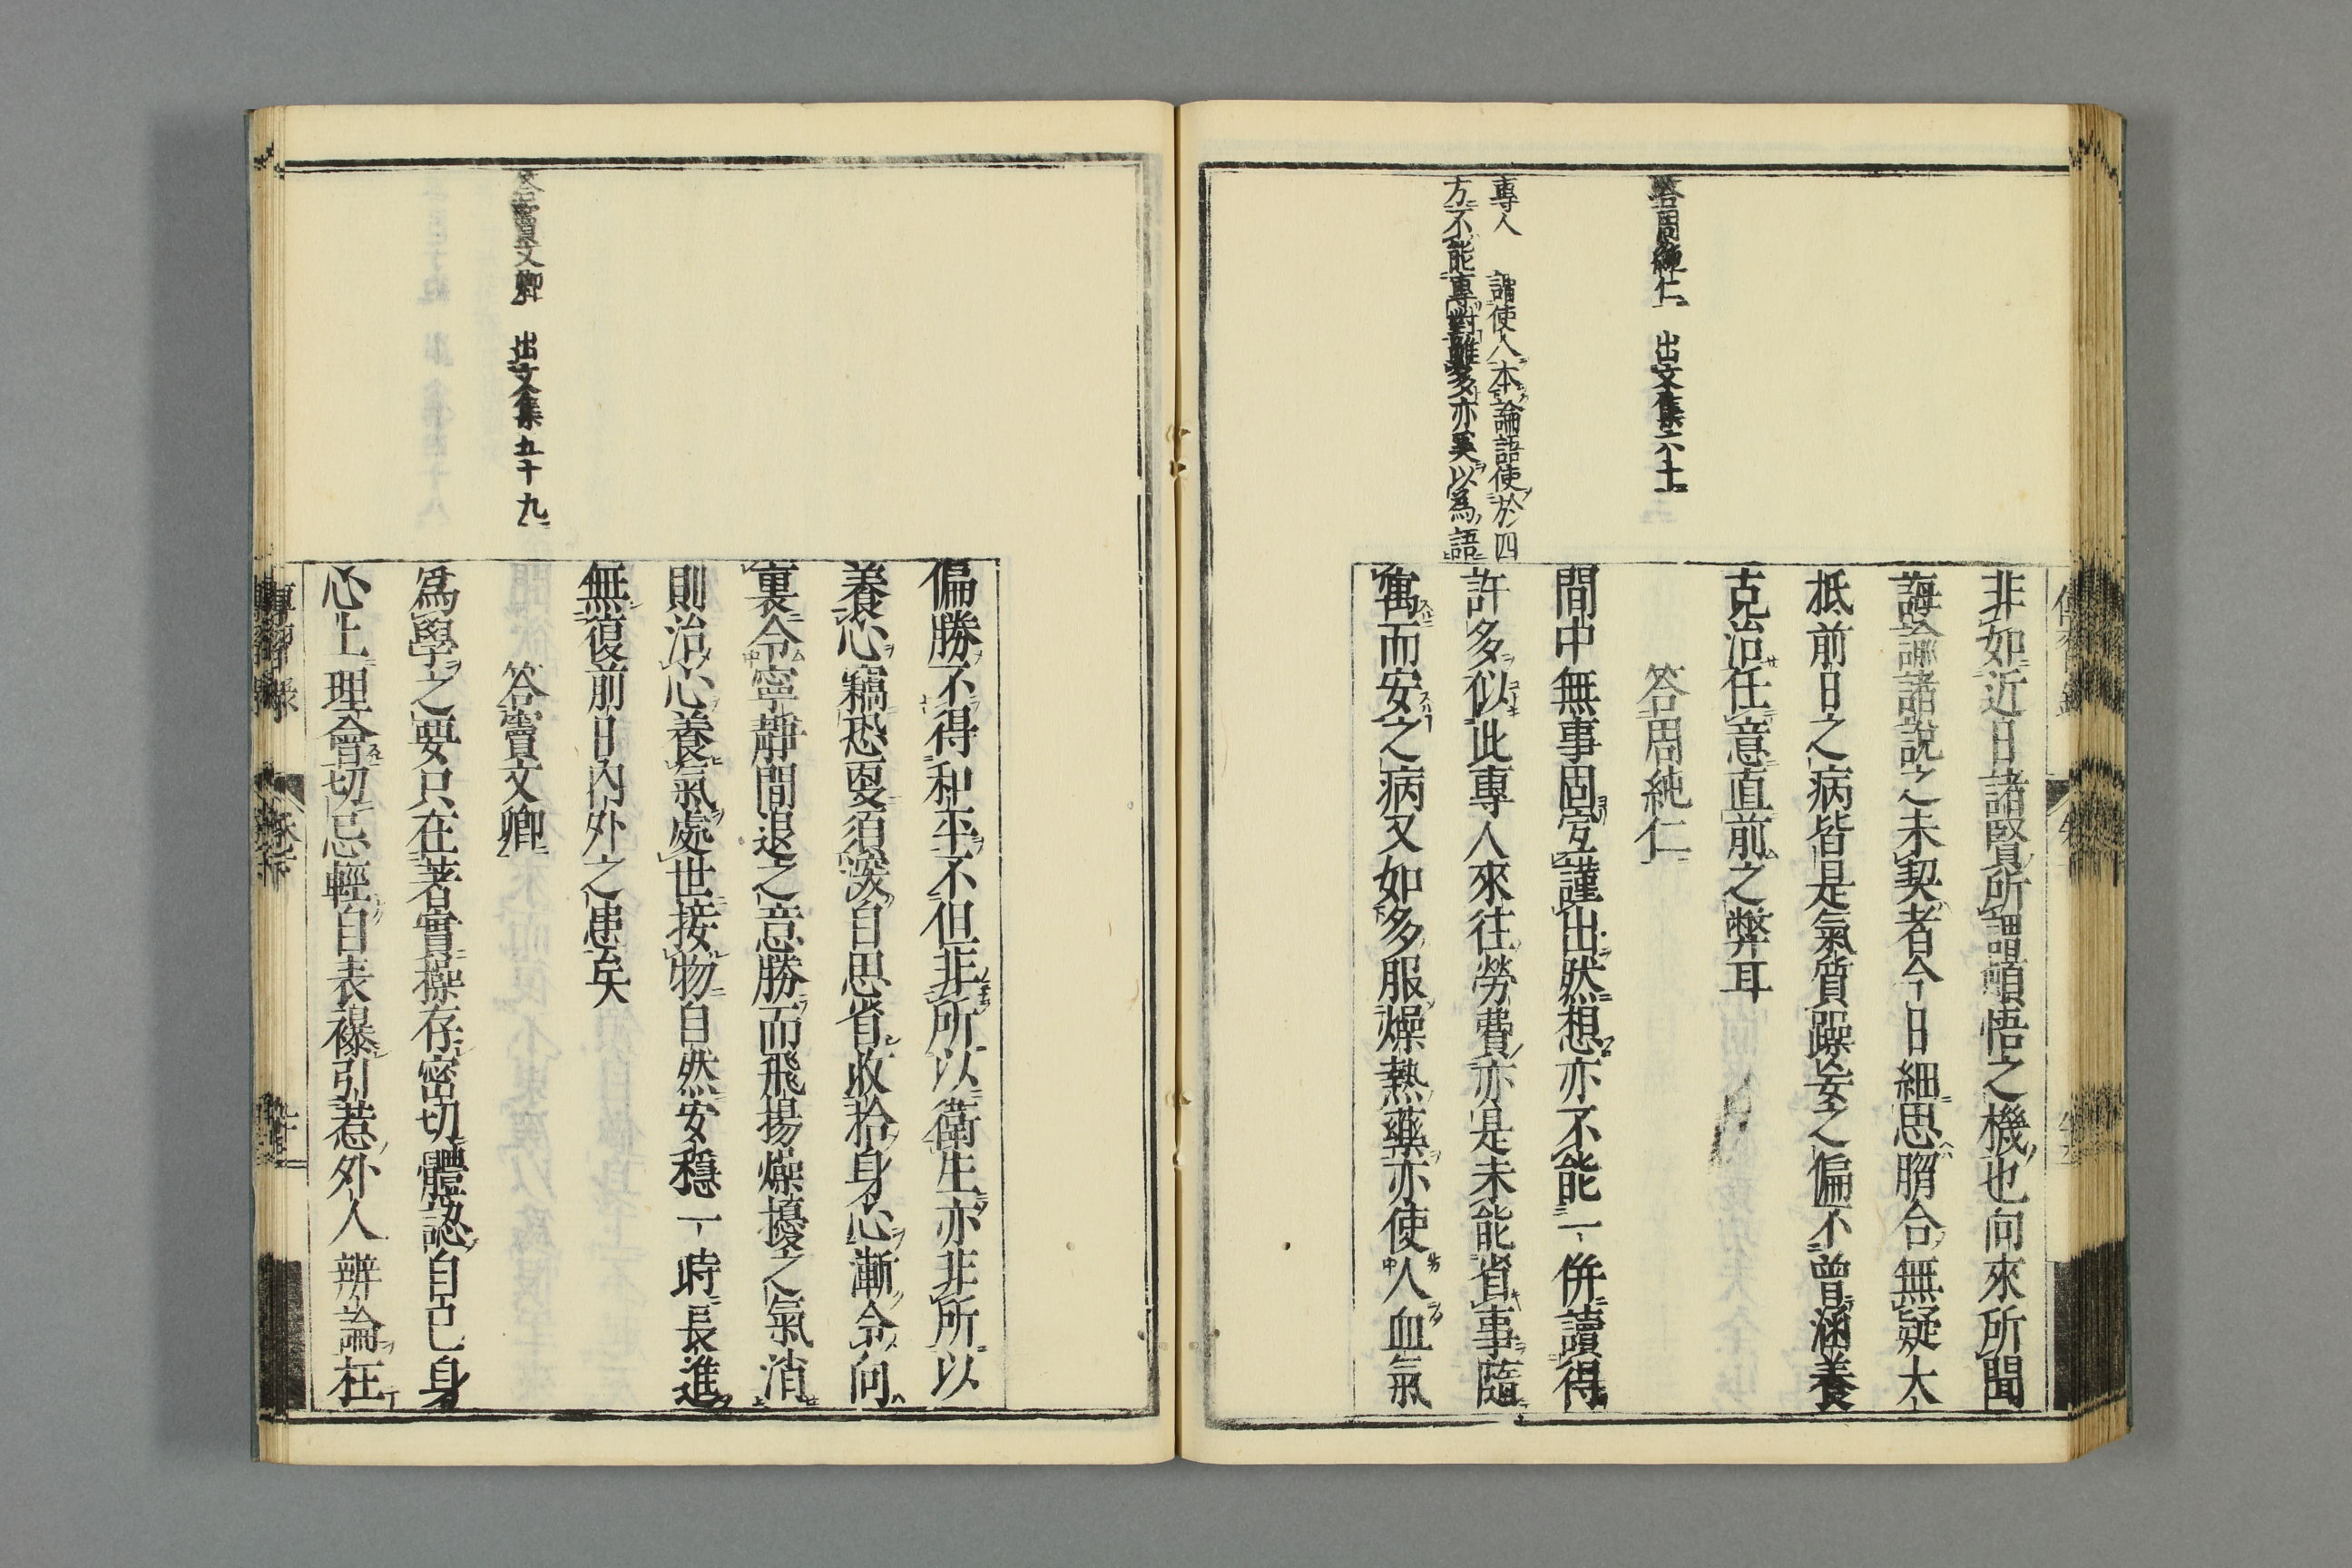 答周純仁 出文集六十
專人 謂使人本論語使於四
方不能專對雖多亦奚以為語
非如近日諸賢所謂頓悟之機也向來所聞
誨諭諸說之未契者今日細思脗合無疑大
抵前日之病皆是氣質躁妄之偏不曾涵養
克治任意直前之弊耳
答周純仁
閒中無事固宜謹出然想亦不能一併讀得
許多似此專人來往勞費亦是未能省事隨
寓而安之病又如多服燥熱藥亦使人血氣
答竇文卿 出文集五十九
偏勝不得和平不但非所以衛生亦非所以
養心竊恐更須深自思省收拾身心漸令向
裏令寧靜閒退之意勝而飛揚燥擾之氣消
則治心養氣處世接物自然安穩一時長進
無復前日內外之患矣
答竇文卿
爲學之要只在著實操存密切體認自己身
心上理會切忌輕自表襮引惹外人辨論枉